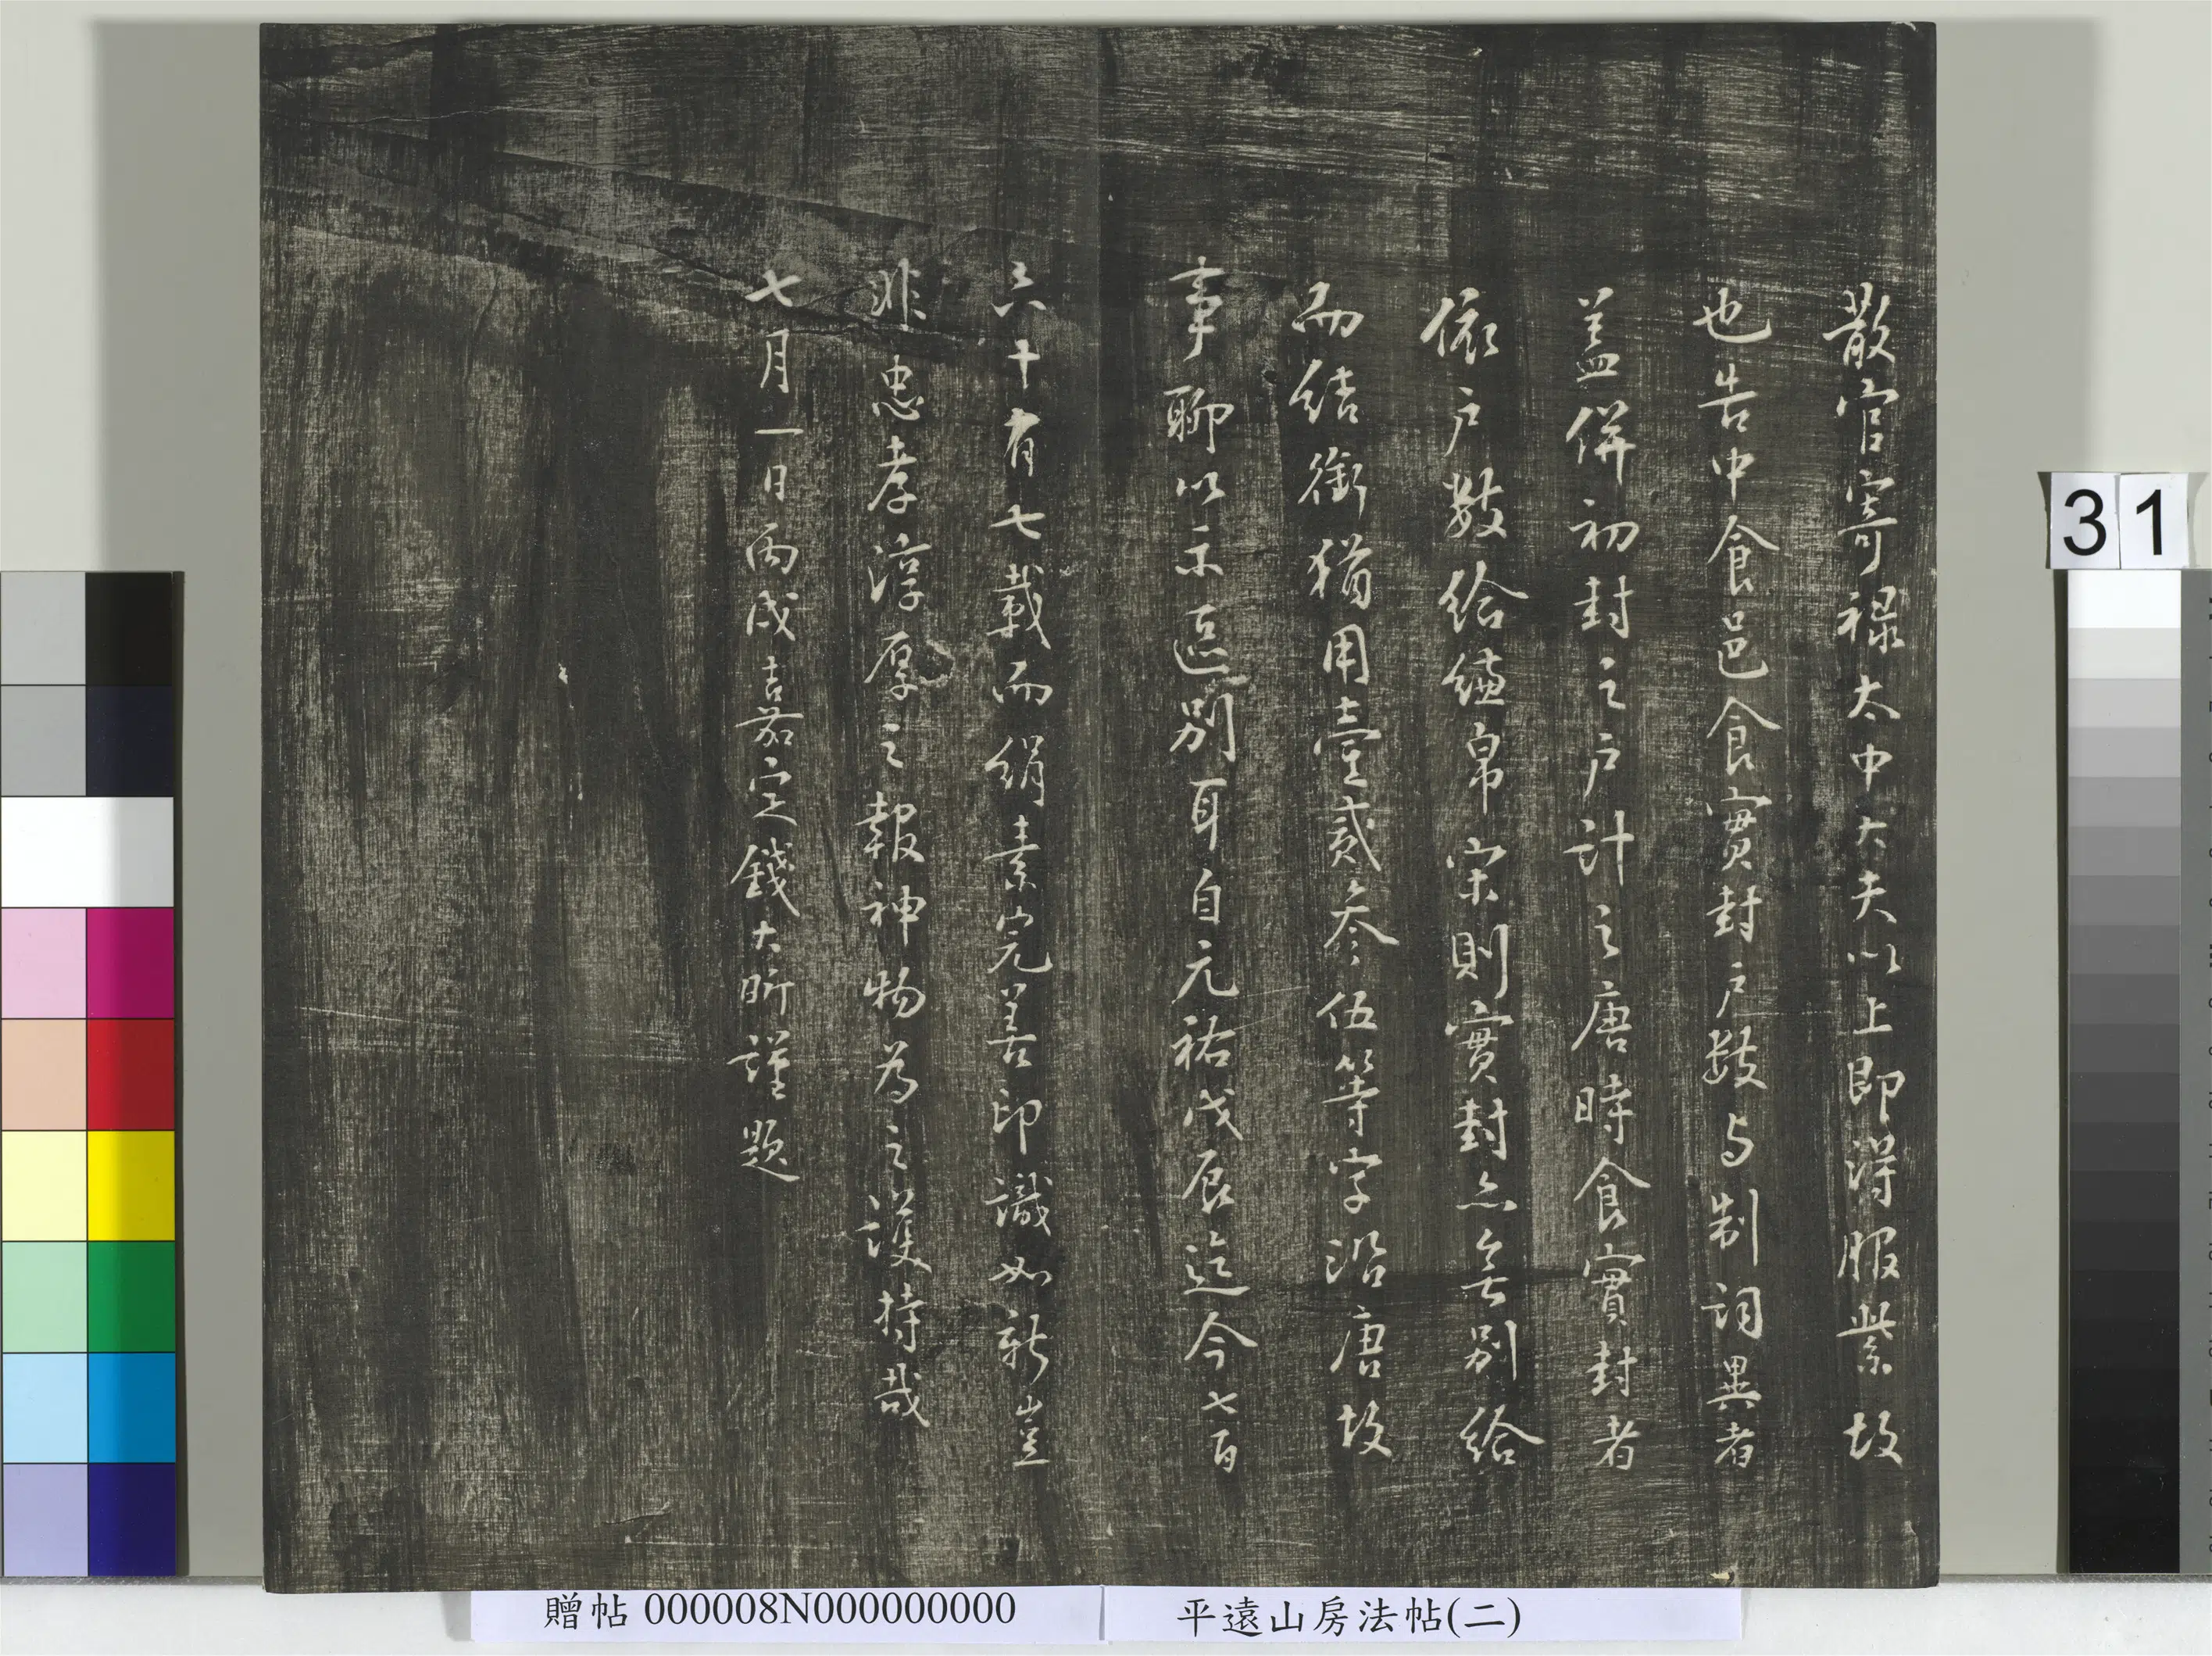 散官寄祿太中大夫以上即得服紫故
也告中食邑食實封戶數与制詞異者
蓋併初封之戶計之唐時食實封者
依戶數給縑帛宋則實封亦無別給
而結銜猶用壹貳叁伍等字沿唐故
事聊以示區別耳自元祐戊辰迄今七百
六十有七載而絹素完善印識如新豈
非忠孝淳厚之報神物為之護持哉
七月一日丙戌嘉定錢大昕謹題
31
贈帖 000008N000000000
平遠山房法帖(二)